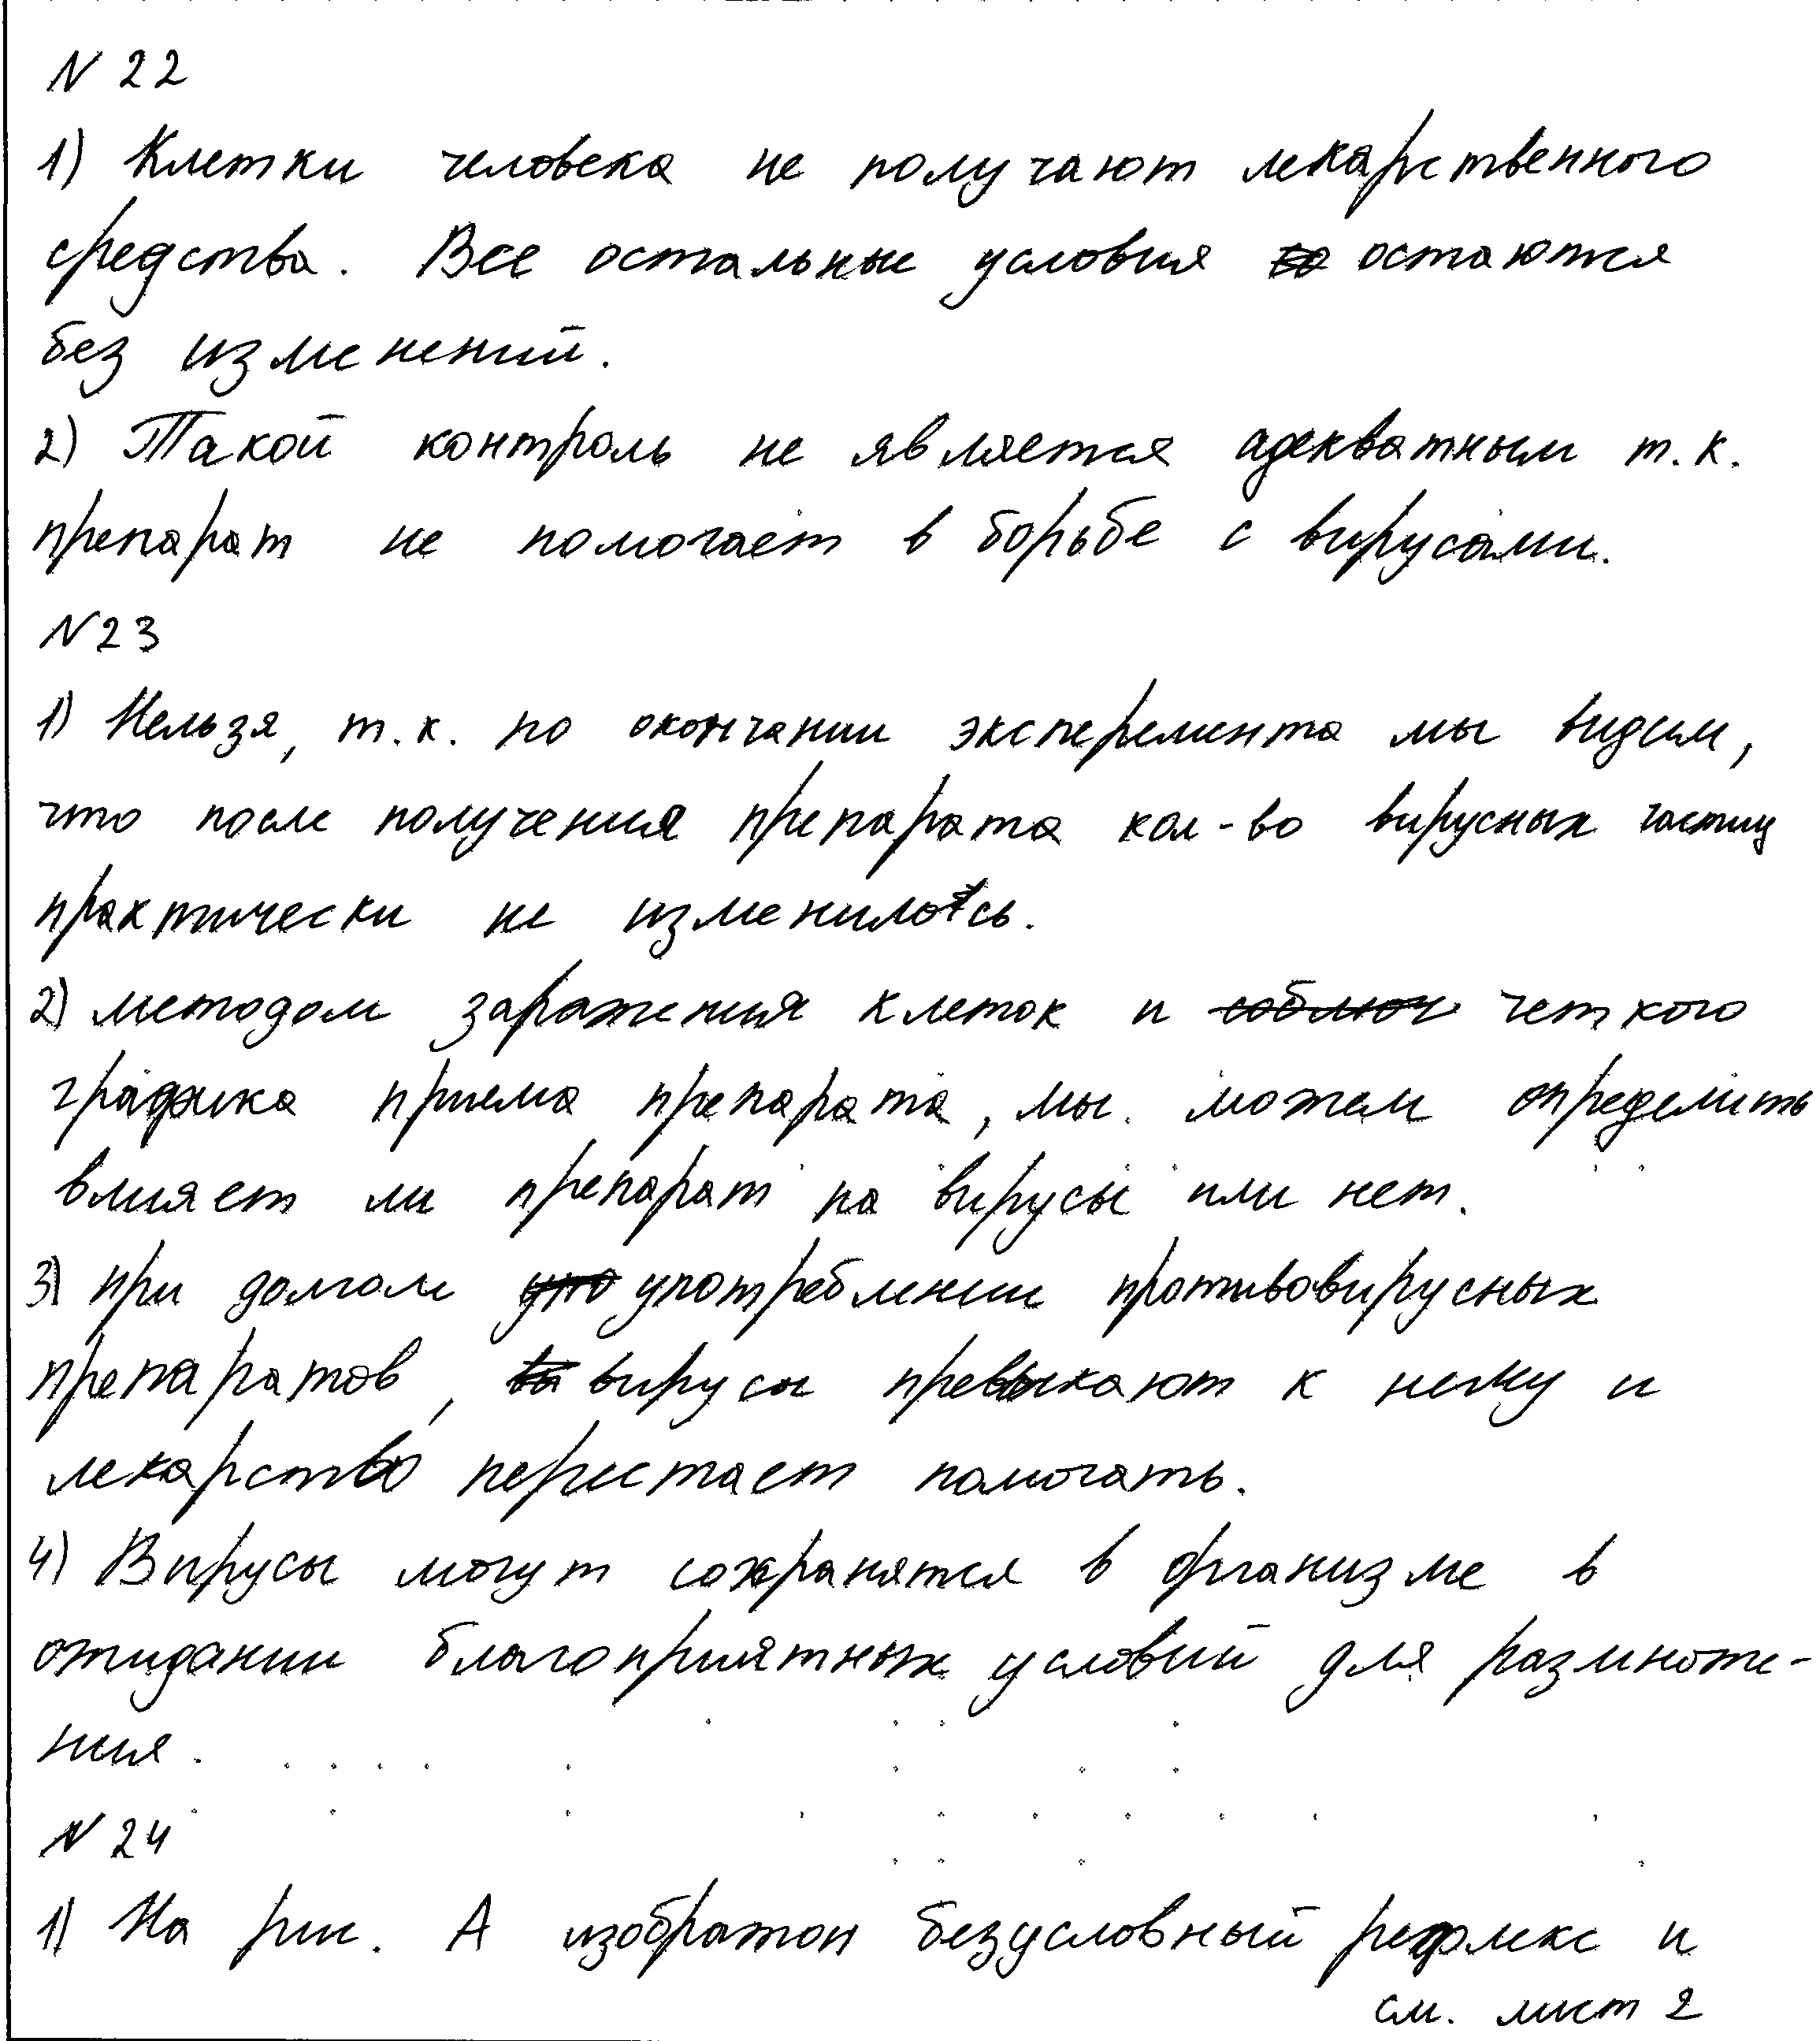 N 22
1) Клетки человека не получают лекарственного
средства. Все остальные условия остаются
без изменений.
2) Такой контроль не является адекватным т.к.
препарат не помогает в борьбе с вирусами.
N23
1) Нельзя, т.к. по окончании эксперемента мы видем,
что после получения препарата кол-во вирусных частиц
практически не изменилось.
2) методом заражения клеток и четкого
графика приема препарата, мы можем определить
влияет ли препарат на вирусы или нет.
3) при долгом употреблении противовирусных
препаратов, вирусы превыкают к нему и
лекарство перестает помогать.
4) Вирусы могут сохранятся в организме в
ожидании благоприятных условий для размноже-
ния.
N 24
1) На рис. А изображон безусловный рефлекс и
см. лист 2